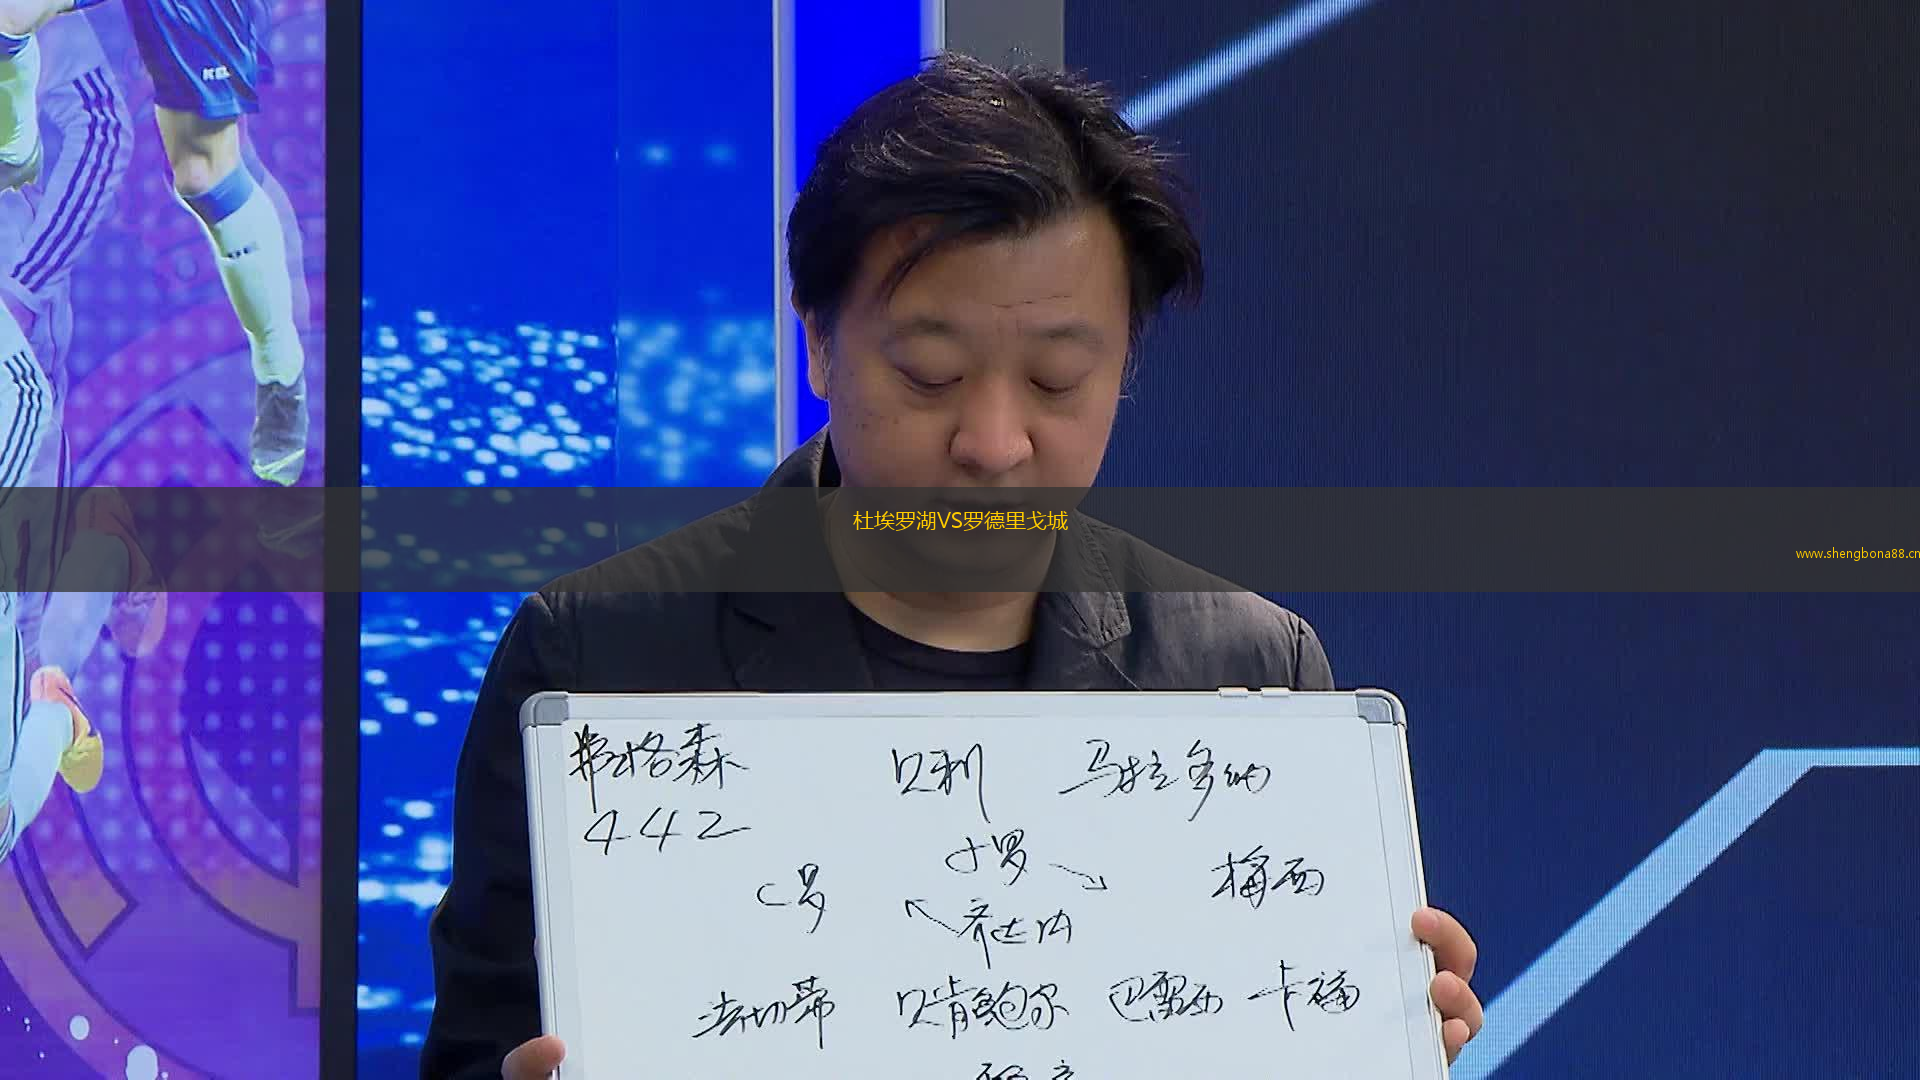 KEL
杜埃罗湖VS罗德里戈城
www.shengbona88.cn
弗格森 贝利 马拉多纳
442
小罗
C罗 梅西
齐达内
法切蒂 贝肯鲍尔 巴雷西 卡福